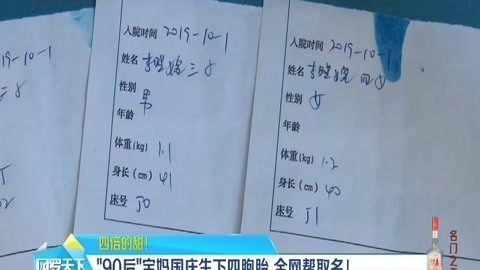 入院时间 2019-10-1
姓名
性别 男
年龄
体重(kg) 1.1
身长(cm) 41
床号 J0
入院时间 2019-10-1
姓名 四女
性别 女
年龄
体重(kg) 1.2
身长(cm) 40
床号 J1
四倍的甜!
"90后"宝妈国庆生下四胞胎 全网帮取名!
网罗天下
名门之